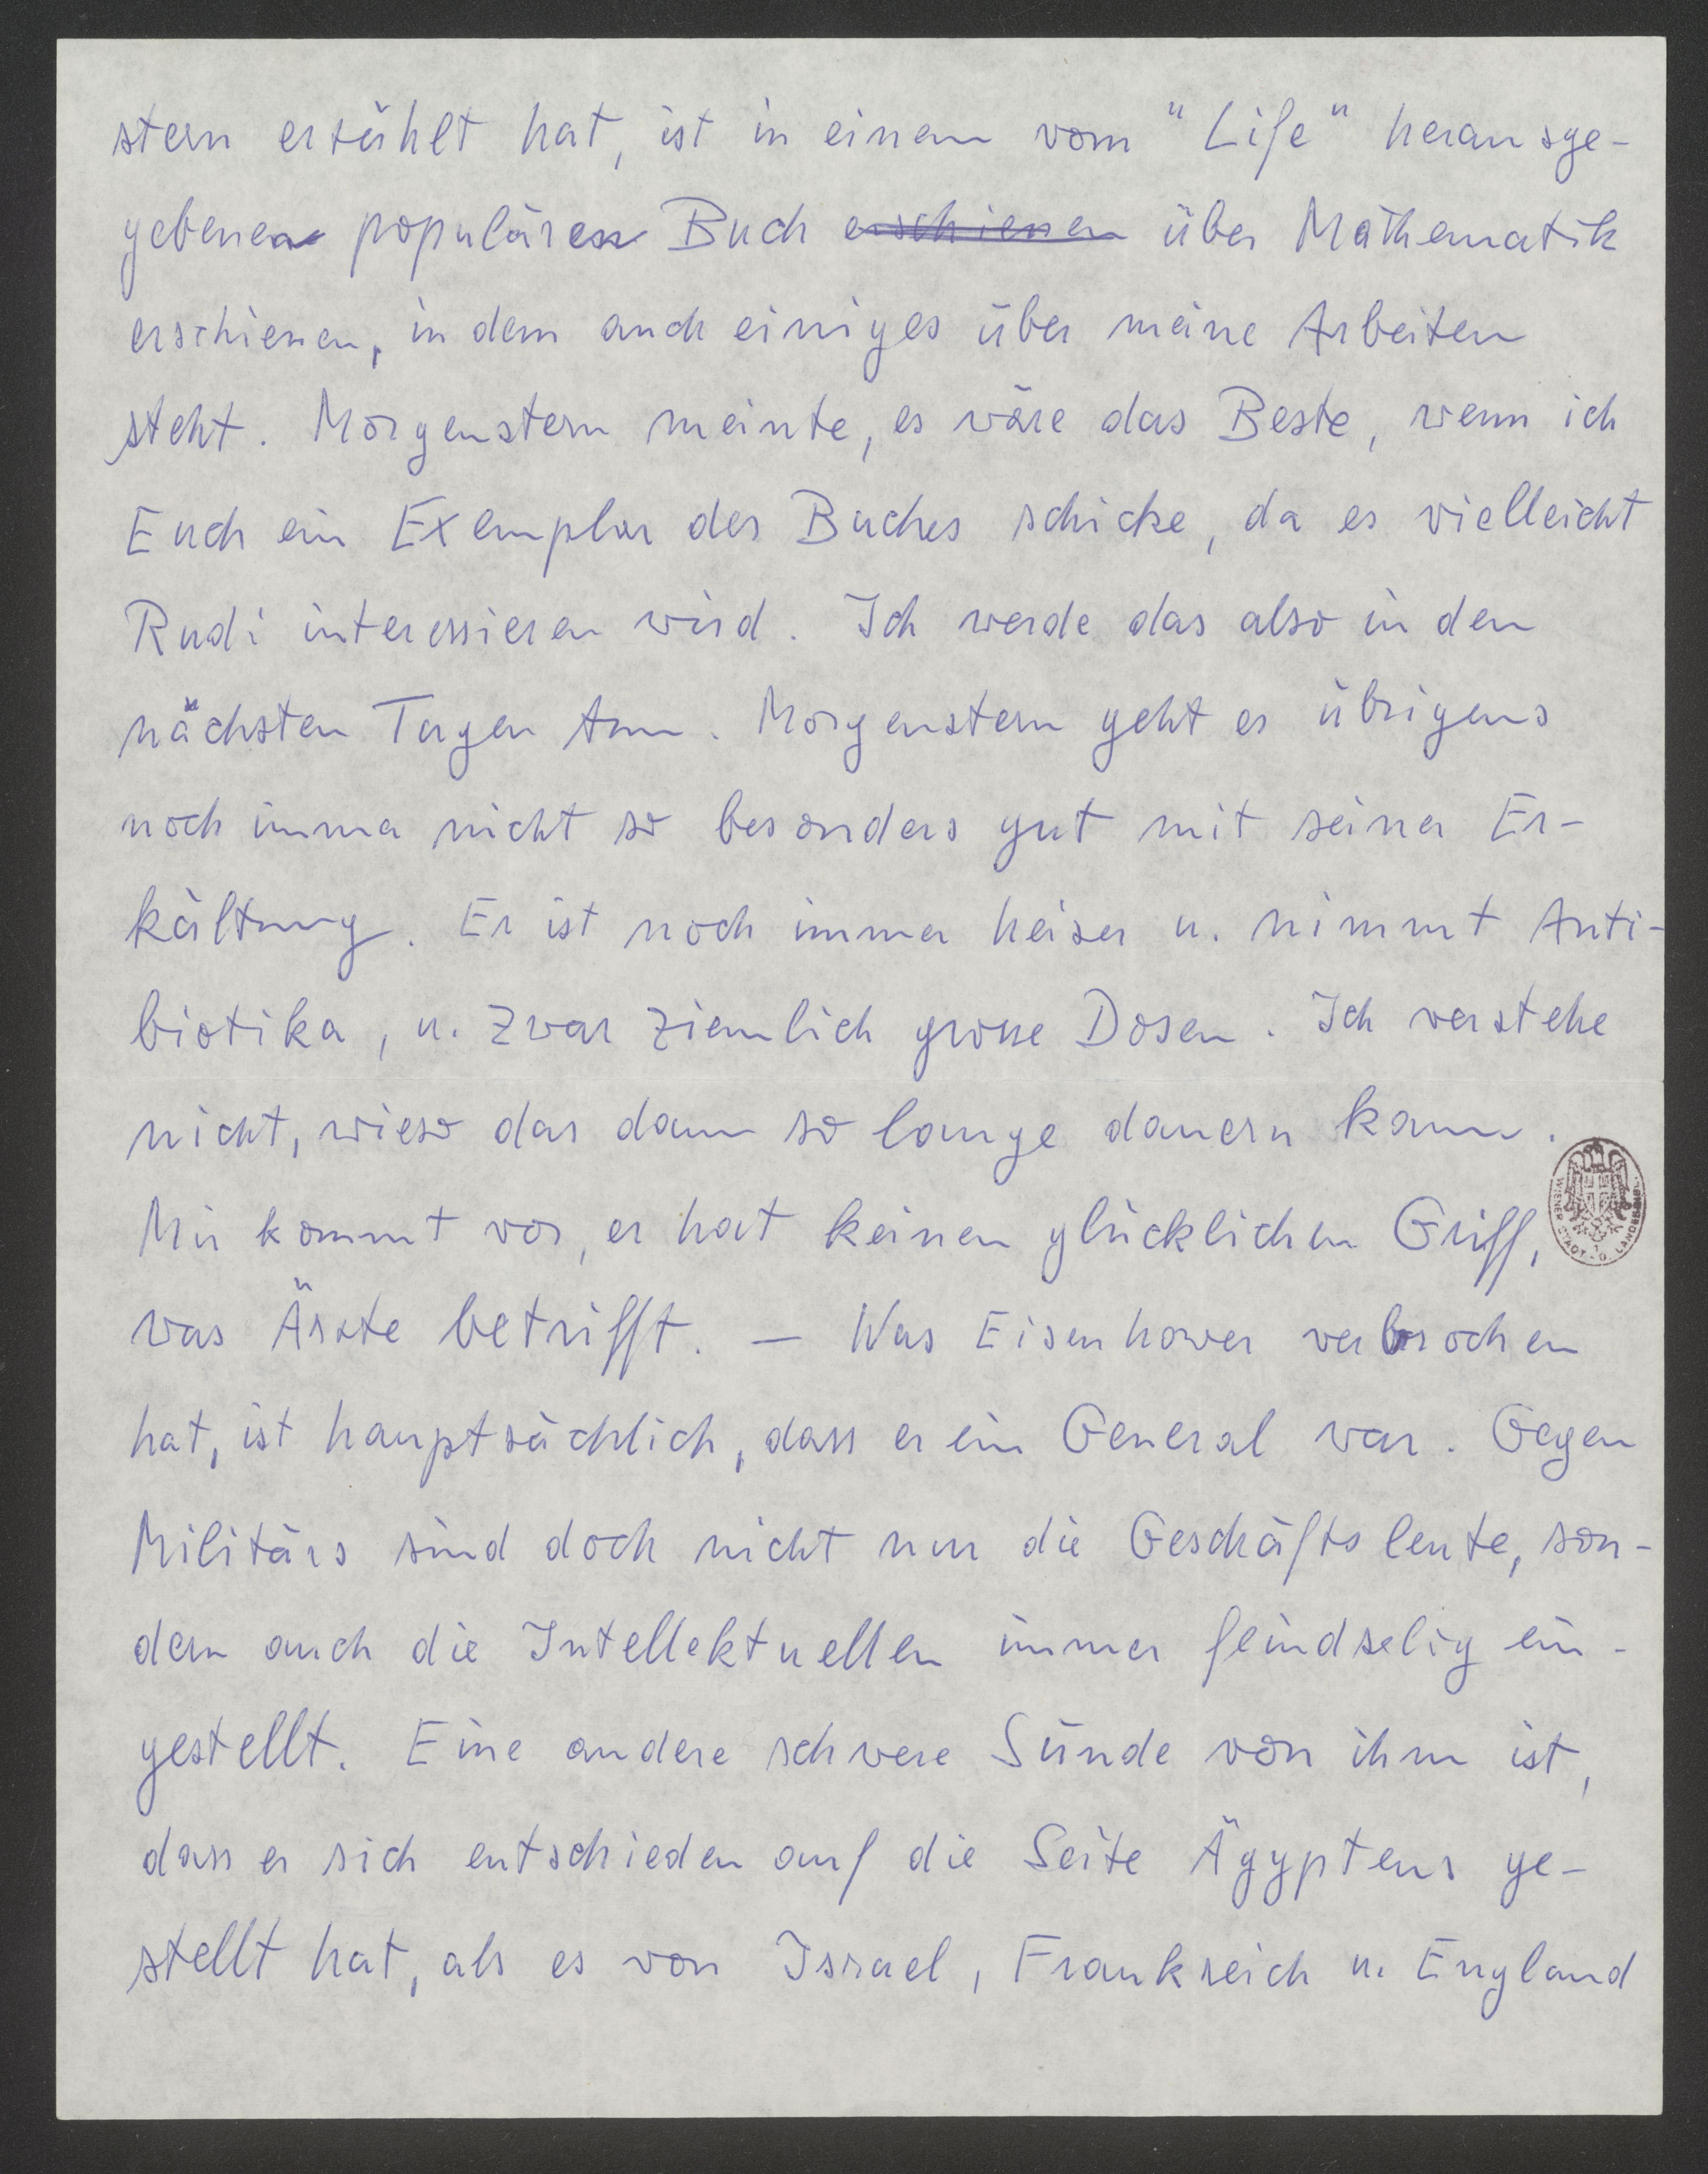 stern erzählt hat, ist in einem vom "Life" herausge-
gebenen populären Buch erschienen über Mathematik
erschienen, in dem auch einiges über meine Arbeiten
steht. Morgenstern meinte, es wäre das Beste, wenn ich
Euch ein Exemplar des Buches schicke, da es vielleicht
Rudi interessieren wird. Ich werde das also in den
nächsten Tagen tun. Morgenstern geht es übrigens
noch immer nicht so besonders gut mit seiner Er-
kältung. Er ist noch immer heiser u. nimmt Anti-
biotika, u. zwar ziemlich grosse Dosen. Ich verstehe
nicht, wieso das dann so lange dauern kann.
Mir kommt vor, er hat keinen glücklichen Griff,
was Ärzte betrifft. — Was Eisenhower verbrochen
hat, ist hauptsächlich, dass er ein General war. Gegen
Militärs sind doch nicht nur die Geschäftsleute, son-
dern auch die Intellektuellen immer feindselig ein-
gestellt. Eine andere schwere Sünde von ihm ist,
dass er sich entschieden auf die Seite Ägyptens ge-
stellt hat, als es von Israel, Frankreich u. England
WIENER STADT- U. LANDESBIBL.